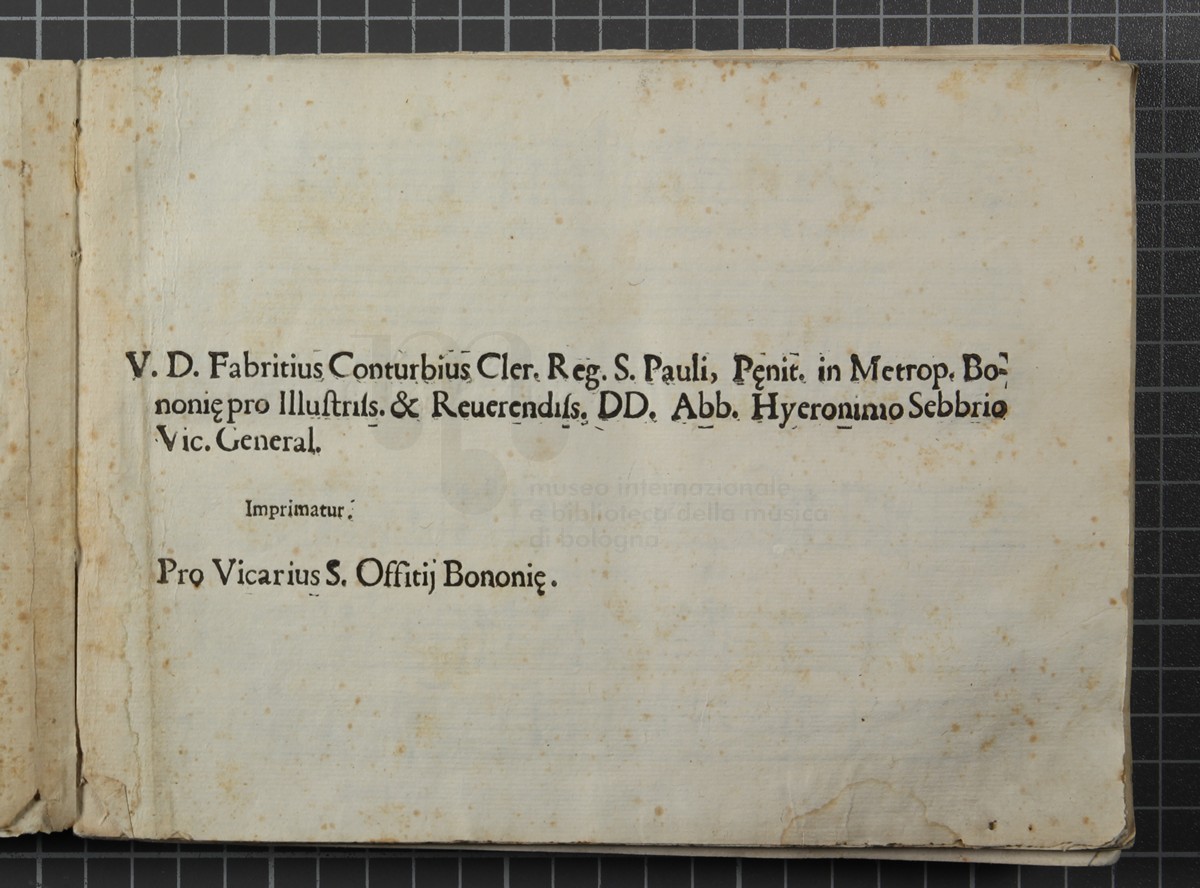 V. D. Fabritius Conturbius Cler. Reg. S. Pauli, Pęnit. in Metrop. Bo-
nonię pro Illuſtriſs. & Reuerendiſs. DD. Abb. Hyeronimo Sebbrio
Vic. General.
Imprimatur.
Pro Vicarius S. Offitij Bononię.
museo internazionale
e biblioteca della musica
di bologna